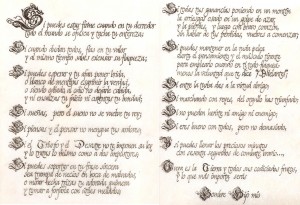 Si puedes estar firme cuando en tu derredor
todo el mundo se ofusca y tacha tu entereza;
Si cuando dudan todos, fías en tu valor
y al mismo tiempo sabes excusar su flaqueza;
Si puedes esperar y a tu afán poner brida,
o blanco de mentiras esgrimir la verdad,
o siendo odiado, al odio no dejar cabida,
y ni ensalzas tu juicio ni ostentas tu bondad;
Si sueñas, pero el sueño no se vuelve tu rey;
Si piensas y el pensar no mengua tus ardores;
Si el Triunfo y el Desastre no te imponen su ley
y los tratas lo mismo como a dos impostores;
Si puedes soportar que tu frase sincera
sea trampa de necios en boca de malvados,
o mirar hecha trizas tu adorada quimera
y tornar a forjarla con útiles mellados;
Si todas tus ganancias poniendo en un montón
las arriesgas osado en un golpe de azar,
y las pierdes, y luego con bravo corazón
sin hablar de tus pérdidas, vuelves a comenzar;
Si puedes mantener en la ruda pelea
alerta el pensamiento y el músculo tirante
para emplearlo cuando en ti todo flaquea
menos la voluntad que te dice ¡Adelante!;
Si entre la turba das a la virtud abrigo;
Si marchando con reyes, del orgullo has triunfado;
Si no pueden herirte ni amigo ni enemigo;
Si eres bueno con todos, pero no demasiado,
Y si puedes llenar los preciosos minutos
con sesenta segundos de combate bravío...,
Tuya es la Tierra y todos sus codiciados frutos,
y lo que más importa serás
Hombre Hijo mío